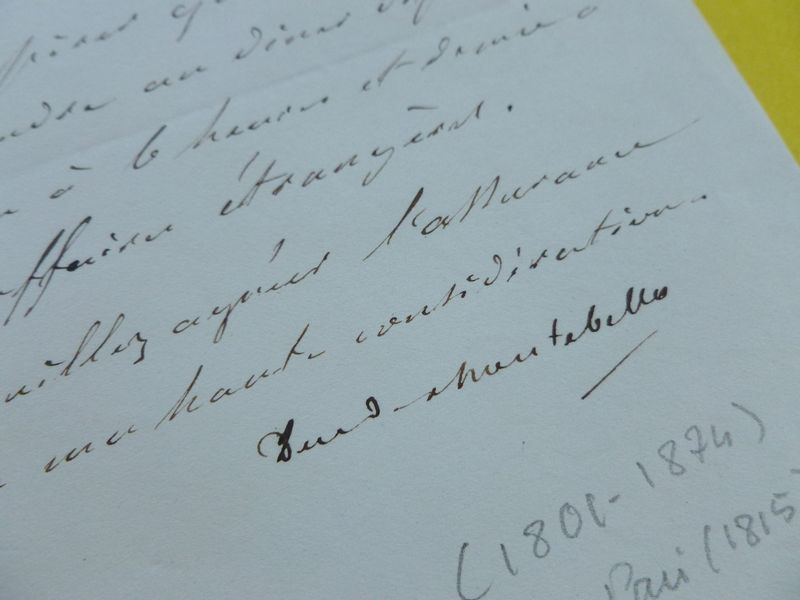 au diner
à 6 heures et demie
affaires étrangères.
veuillez agréer l'assurance
ma haute considération.
Duc de Montebello
(1801-1874)
Pair (1815